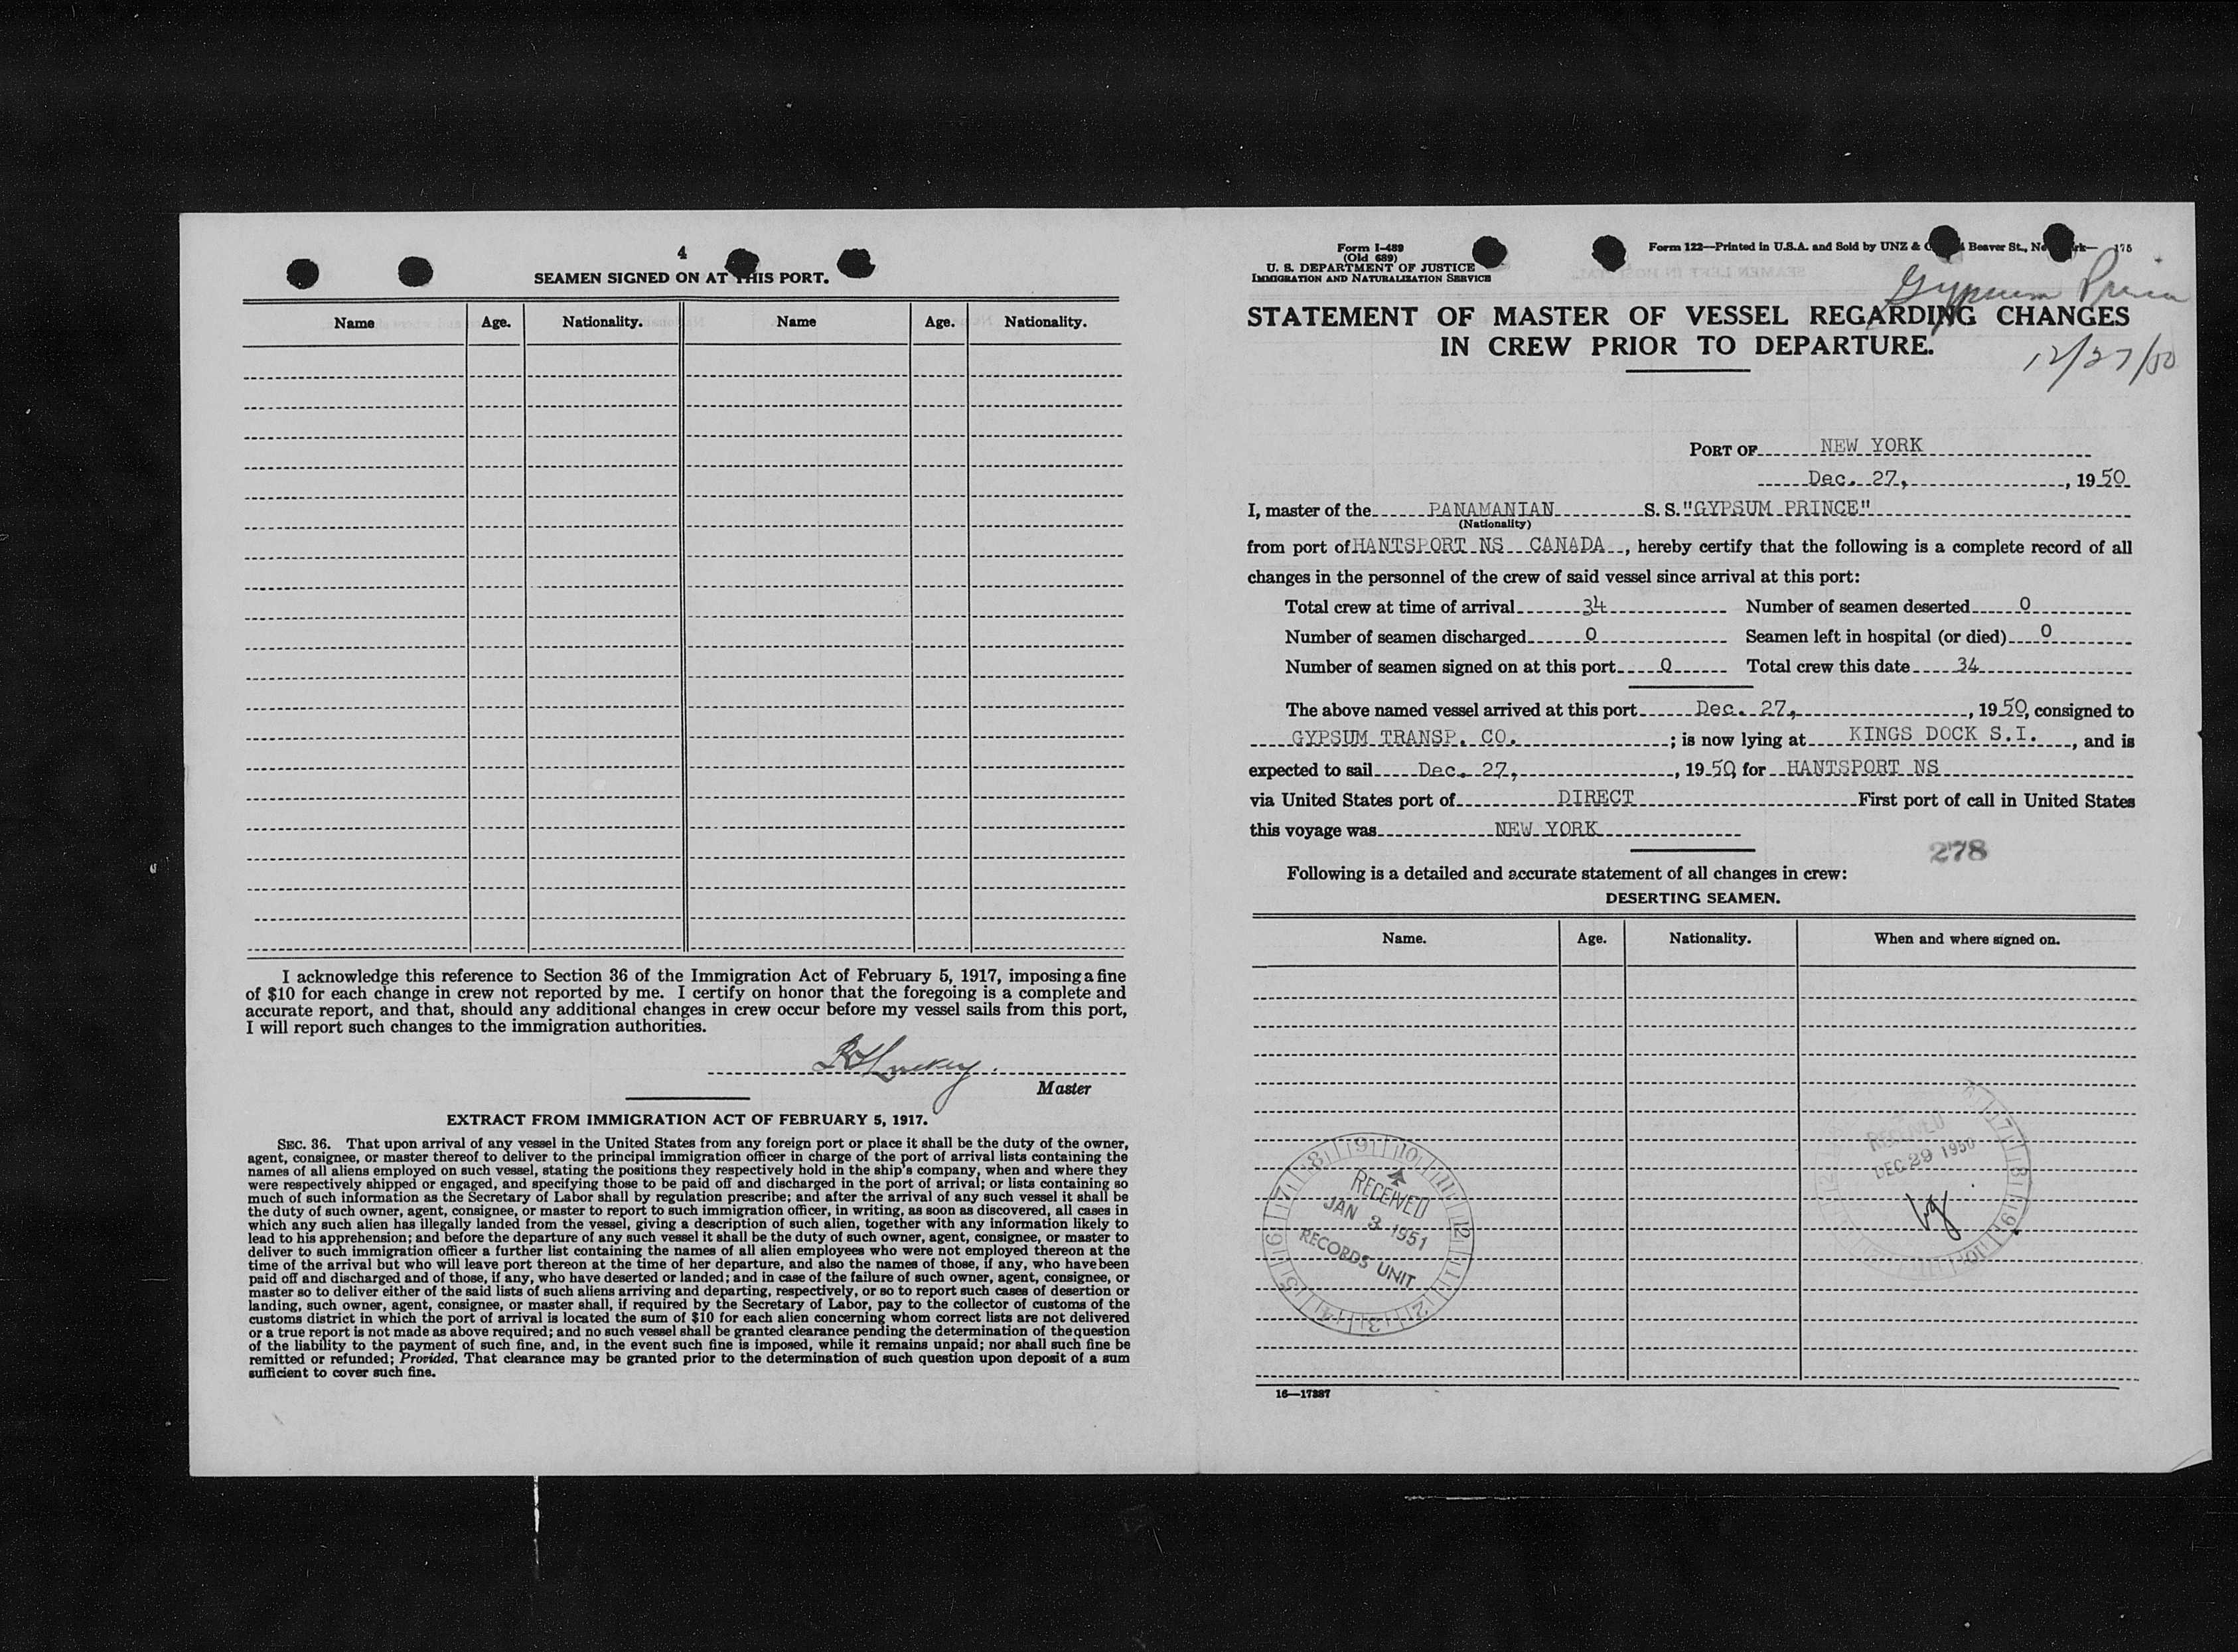 4
SEAMEN SIGNED ON AT THIS PORT.
Name Age. Nationality. Name Age. Nationality.
I acknowledge this reference to Section 36 of the Immigration Act of February 5, 1917, imposing a fine
of $10 for each change in crew not reported by me. I certify on honor that the foregoing is a complete and
accurate report, and that, should any additional changes in crew occur before my vessel sails from this port,
I will report such changes to the immigration authorities.
Master
EXTRACT FROM IMMIGRATION ACT OF FEBRUARY 5, 1917.
SEC. 36. That upon arrival of any vessel in the United States from any foreign port or place it shall be the duty of the owner,
agent, consignee, or master thereof to deliver to the principal immigration officer in charge of the port of arrival lists containing the
names of all aliens employed on such vessel, stating the positions they respectively hold in the ship's company, when and where they
were respectively shipped or engaged, and specifying those to be paid off and discharged in the port of arrival; or lists containing so
much of such information as the Secretary of Labor shall by regulation prescribe; and after the arrival of any such vessel it shall be
the duty of such owner, agent, consignee, or master to report to such immigration officer, in writing, as soon as discovered, all cases in
which any such alien has illegally landed from the vessel, giving a description of such alien, together with any information likely to
lead to his apprehension; and before the departure of any such vessel it shall be the duty of such owner, agent, consignee, or master to
deliver to such immigration officer a further list containing the names of all alien employees who were not employed thereon at the
time of the arrival but who will leave port thereon at the time of her departure, and also the names of those, if any, who have been
paid off and discharged and of those, if any, who have deserted or landed; and in case of the failure of such owner, agent, consignee, or
master so to deliver either of the said lists of such aliens arriving and departing, respectively, or so to report such cases of desertion or
landing, such owner, agent, consignee, or master shall, if required by the Secretary of Labor, pay to the collector of customs of the
customs district in which the port of arrival is located the sum of $10 for each alien concerning whom correct lists are not delivered
or a true report is not made as above required; and no such vessel shall be granted clearance pending the determination of the question
of the liability to the payment of such fine, and, in the event such fine is imposed, while it remains unpaid; nor shall such fine be
remitted or refunded; Provided, That clearance may be granted prior to the determination of such question upon deposit of a sum
sufficient to cover such fine.
Form I-489
(Old 689)
U. S. DEPARTMENT OF JUSTICE
IMMIGRATION AND NATURALIZATION SERVICE
Form 122—Printed in U.S.A. and Sold by UNZ & Beaver St., 175
Gypsum Prince
STATEMENT OF MASTER OF VESSEL REGARDING CHANGES
IN CREW PRIOR TO DEPARTURE.
12/27/50
PORT OF NEW YORK
Dec. 27, , 1950
I, master of the PANAMANIAN S. S. "GYPSUM PRINCE"
(Nationality)
from port of HANTSPORT NS CANADA , hereby certify that the following is a complete record of all
changes in the personnel of the crew of said vessel since arrival at this port:
Total crew at time of arrival 34 Number of seamen deserted 0
Number of seamen discharged 0 Seamen left in hospital (or died) 0
Number of seamen signed on at this port 0 Total crew this date 34
The above named vessel arrived at this port Dec. 27, , 1950, consigned to
GYPSUM TRANSP. CO. ; is now lying at KINGS DOCK S.I. , and is
expected to sail Dec. 27, , 1950 for HANTSPORT NS
via United States port of DIRECT First port of call in United States
this voyage was NEW YORK
278
Following is a detailed and accurate statement of all changes in crew:
DESERTING SEAMEN.
Name. Age. Nationality. When and where signed on.
RECEIVED
DEC 29 1950
RECEIVED
JAN 3 1951
RECORDS UNIT
16—17387